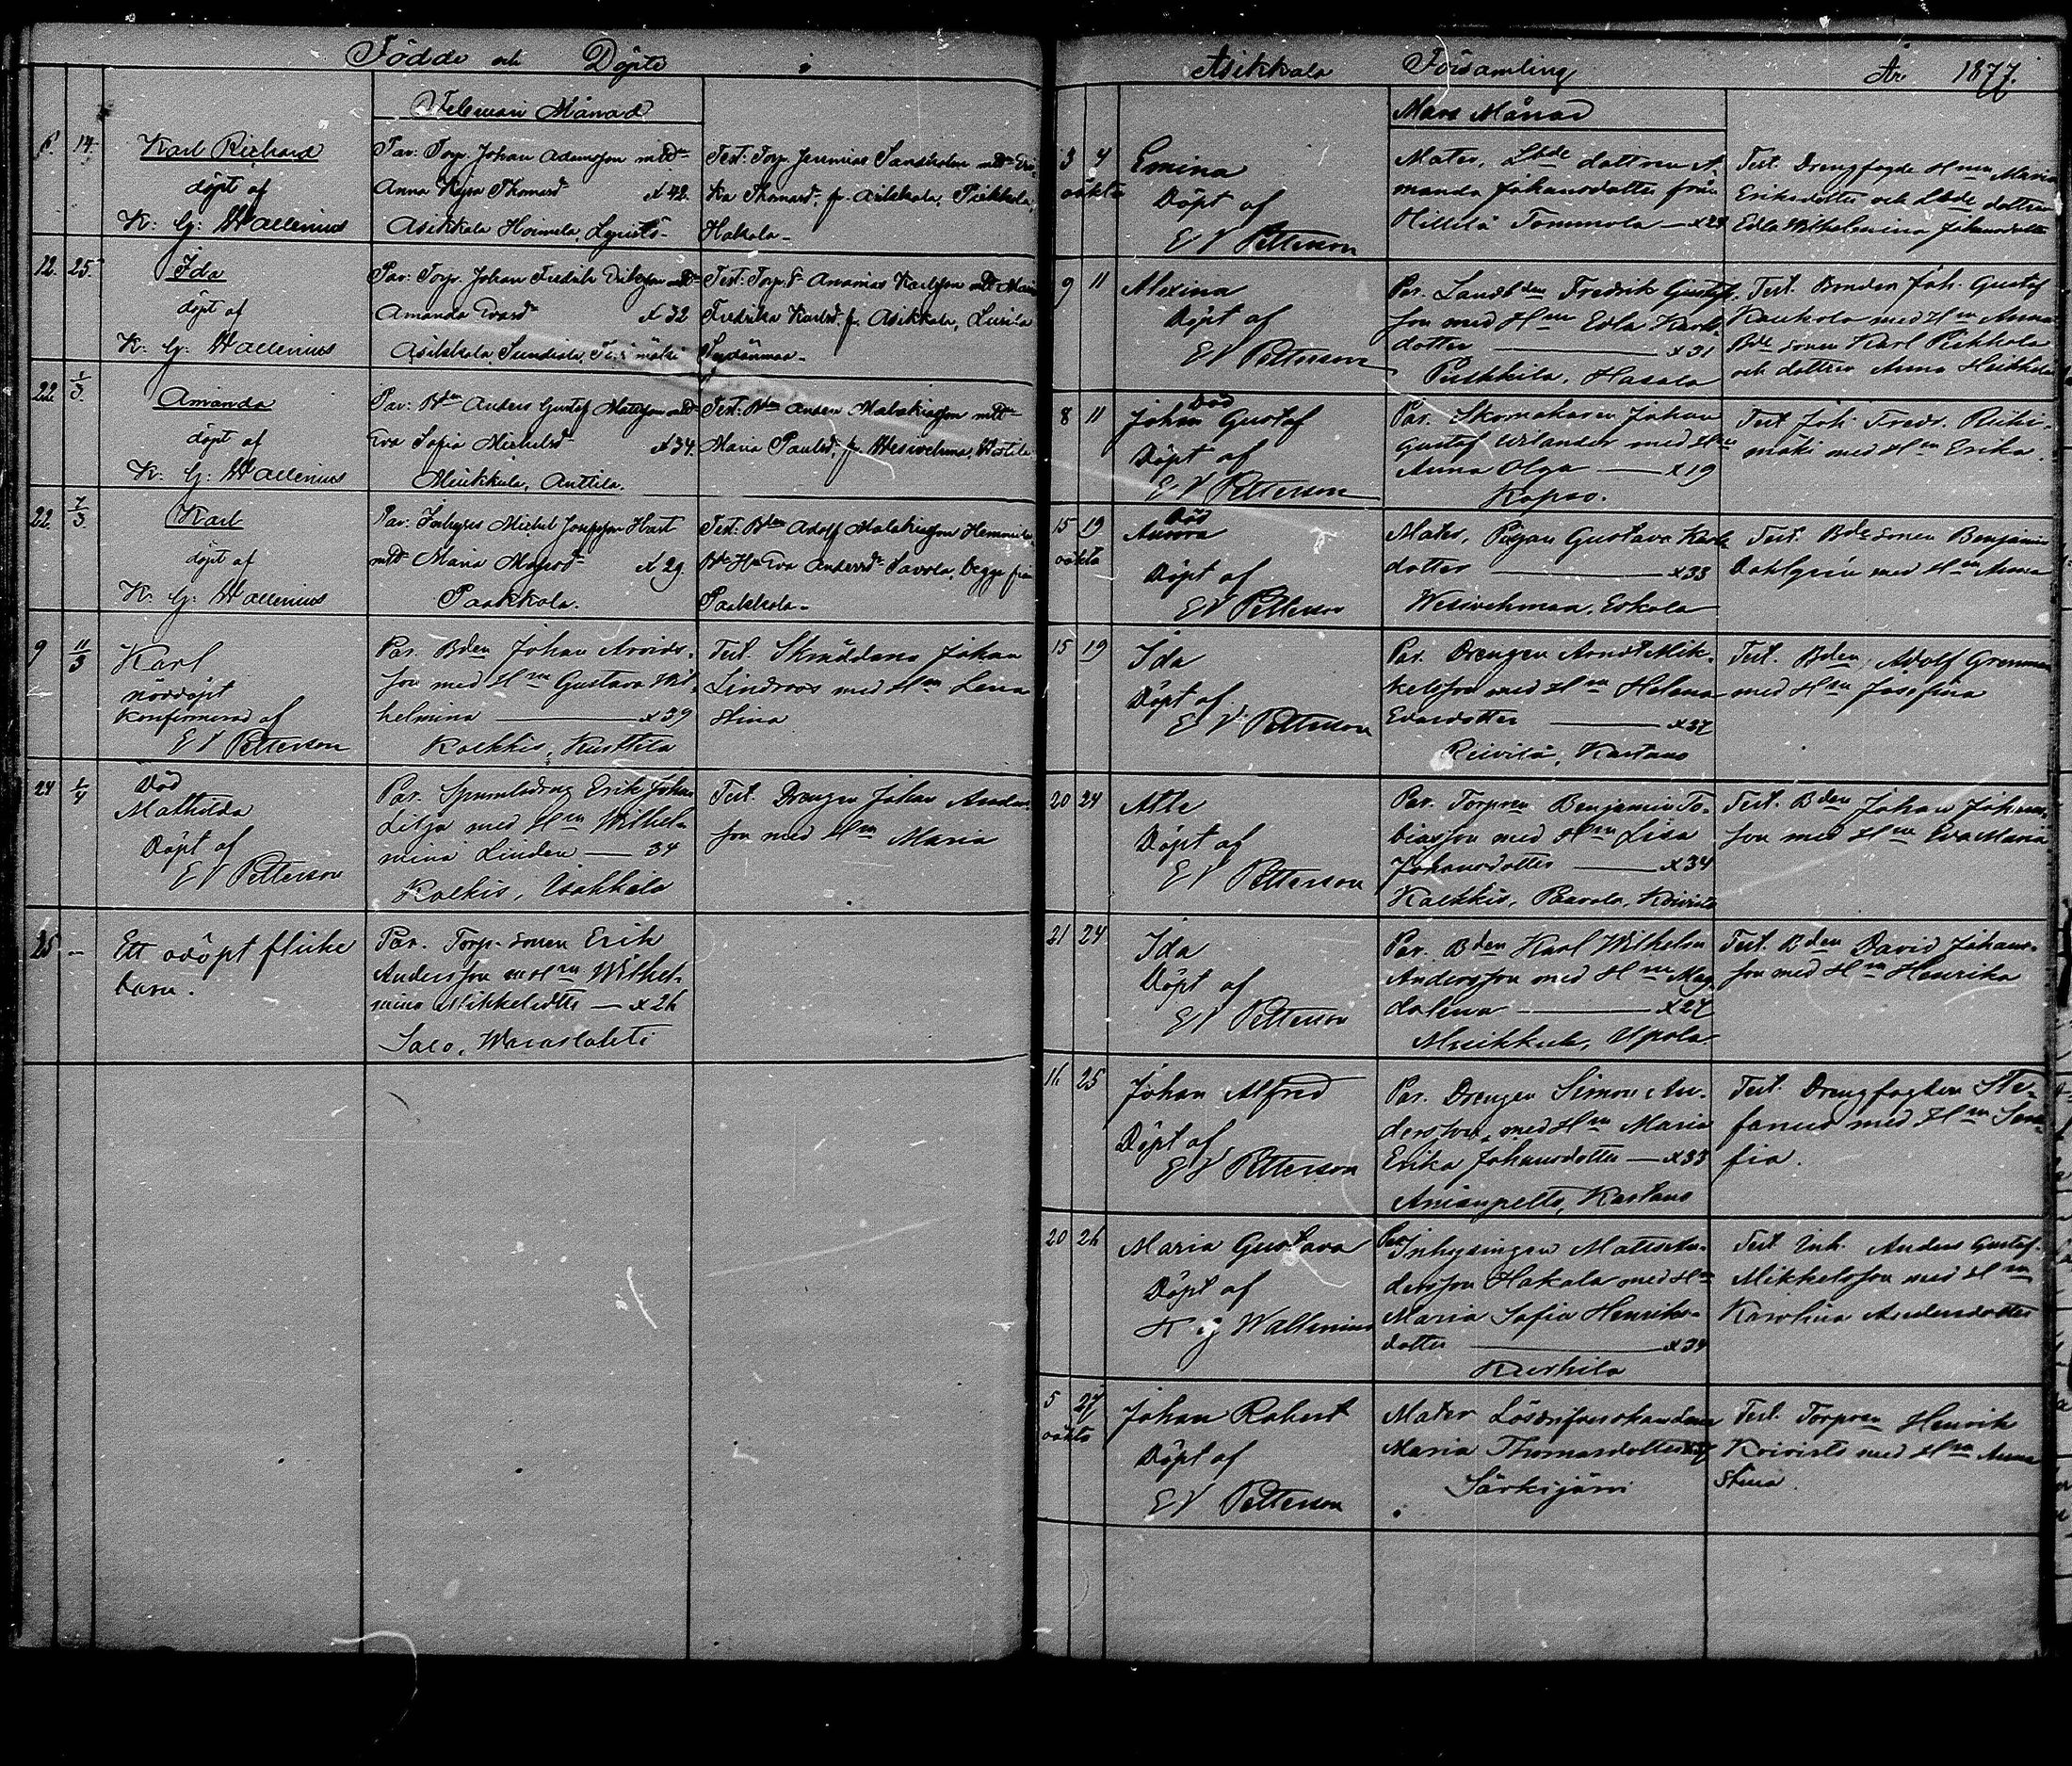 Födde och Döpte i
Februari Månad
6. 14. Karl Richard
döpt af
K: G: Wallenius
Par: Torp. Johan Adamsson m. Hu
Anna Kajsa Thomasd. x 42.
Asikkala Hoimela,
Test: Torp. Jeremias Sandholm
ka Thomasd. fr. Asikkala,
Hakala
12. 25. Ida
döpt af
K: G: Wallenius
Par: Torp. Johan Fredrik Eriksson
Amanda Evasd. x 32
Asikkala
Test: Torp. Ananias Karlsson Maria
Fredrika Karlsd. fr. Asikkala,
22. 1/3. Amanda
döpt af
K: G: Wallenius
Par: Bden Anders Gustaf Mattsson
Eva Sofia Michelsd. x 34.
Muikkula, Anttila.
Test: Bden Anders Malakiasson
Maria Paulsd. fr. Wesivehma,
22. 7/3. Karl
döpt af
K: G: Wallenius
Par: Inhyses Michel Josefsson
Maria x 29.
Paakkola.
Test: Bden Adolf Malakiasson
Eva Andersd. Savola, begge från
Paakkola
9 11/3 Karl
nöddöpt
konfirmerad af
E V Petterson
Par. Bden Johan Arvids-
son med Hun Gustava Wil-
helmina x 39
Kalkkis, Kurttila
Test. Skräddare Johan
Lindroos med Hun Lena
Stina
24 1/4 Död
Mathilda
Döpt af
E V Petterson
Par. Erik Johan
Lilja med Hun Wilhel-
mina Linden 34
Kalkis,
Test. Drengen Johan Anders-
son med Hun Maria
25 - Ett odöpt flicke
barn.
Par. Torp. sonen Erik
Andersson m Hun Wilhel-
mina Mikkelsdtter x 26
Salo,
Asikkala Församling År 1877.
Mars Månad
3 4 Emina
oäkta
Döpt af
E V Petterson
Mater, Lbde dottren A
manda Johansdotter från
Hillilä Tommola x 23
Test. Drengfogde Hun Maria
Eriksdotter och Lbde dottren
Edla Wilhelmina Johansdotter
9 11 Alexina
Döpt af
E V Petterson
Par. Landbden Fredrik Gustafs-
son med Hun Edla Karls-
dotter x 31
Pulkkila, Hasala
Test. Bonden Joh. Gustaf
Kaukola med Hun Anna
Bde sonen Karl Pirkkola
och dottren Anna Heikkila
8 11 Död
Johan Gustaf
Döpt af
E V Petterson
Par. Skomakaren Johan
Gustaf Wilander med Hun
Anna Olga x 19
Kopso.
Test. Joh. Fredr. Riihi-
mäki med Hun Erika.
15 19 Död
Aurora
oäkta
Döpt af
E V Petterson
Mater, Pigan Gustava Karls
dotter x 33
Wesivehmaa, Eskola
Test. Bde sonen Benjamin
Dahlgrén med Hun Anna
15 19 Ida
Döpt af
E V Petterson
Par. Drengen Mik-
kelsson med Hun Helena
Edvardotter x 37
Reivilä, Kartano
Test. Bden Adolf
med Hun Josefina
20 24 Atle
Döpt af
E V Petterson
Par. Torparen Benjamin To-
biasson med Hun Lisa
Johansdotter x 34
Kalkkis, Paavola, Koivisto
Test. Bden Johan Johans-
son med Hun Eva Maria
21 24 Ida
Döpt af
E V Petterson
Par. Bden Karl Wilhelm
Andersson med Hun Mag-
dalena x 27
Muikkula, Upola
Test. Bden David Johans-
son med Hun Henrika
16 25 Johan Alfred
Döpt af
E V Petterson
Par. Drengen Simon An-
dersson, med Hun Maria
Erika Johansdotter x 33
Anianpelto, Kartano
Test. Drengfogden Ste-
fanus med Hun
fia.
20 26 Maria Gustava
Döpt af
K G Wallenius
Par. Inhysingen Matts An-
dersson Hakala med Hun
Maria Sofia Henriks-
dotter x 34
Kurhila
Test. Inh. Anders Gustaf
Mikkelsson med Hun
Karolina Andersdotter
5 27 Johan Robert
oäkta
Döpt af
E V Petterson
Mater
Maria Thomasdotter
Särkijärvi
Test. Torparen Henrik
Koivisto med Hun Anna
Stina.